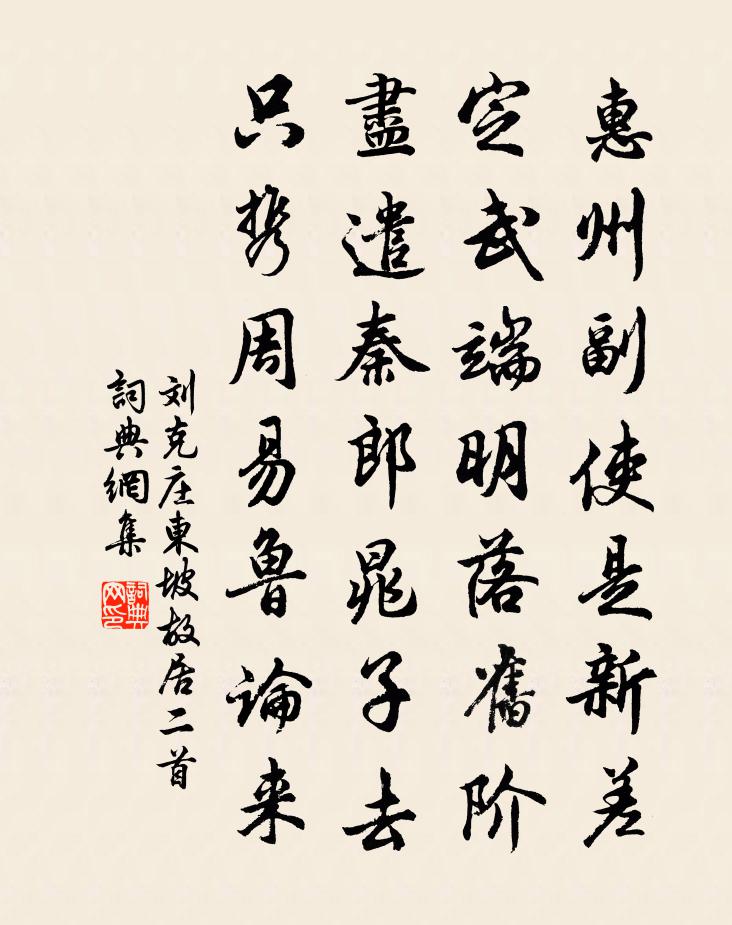 惠州副使是新差
定武端明落舊阶
盡遣秦郎晁子去
只携周易魯論来
刘克庄東坡故居二首
詞典網集
詞典网印